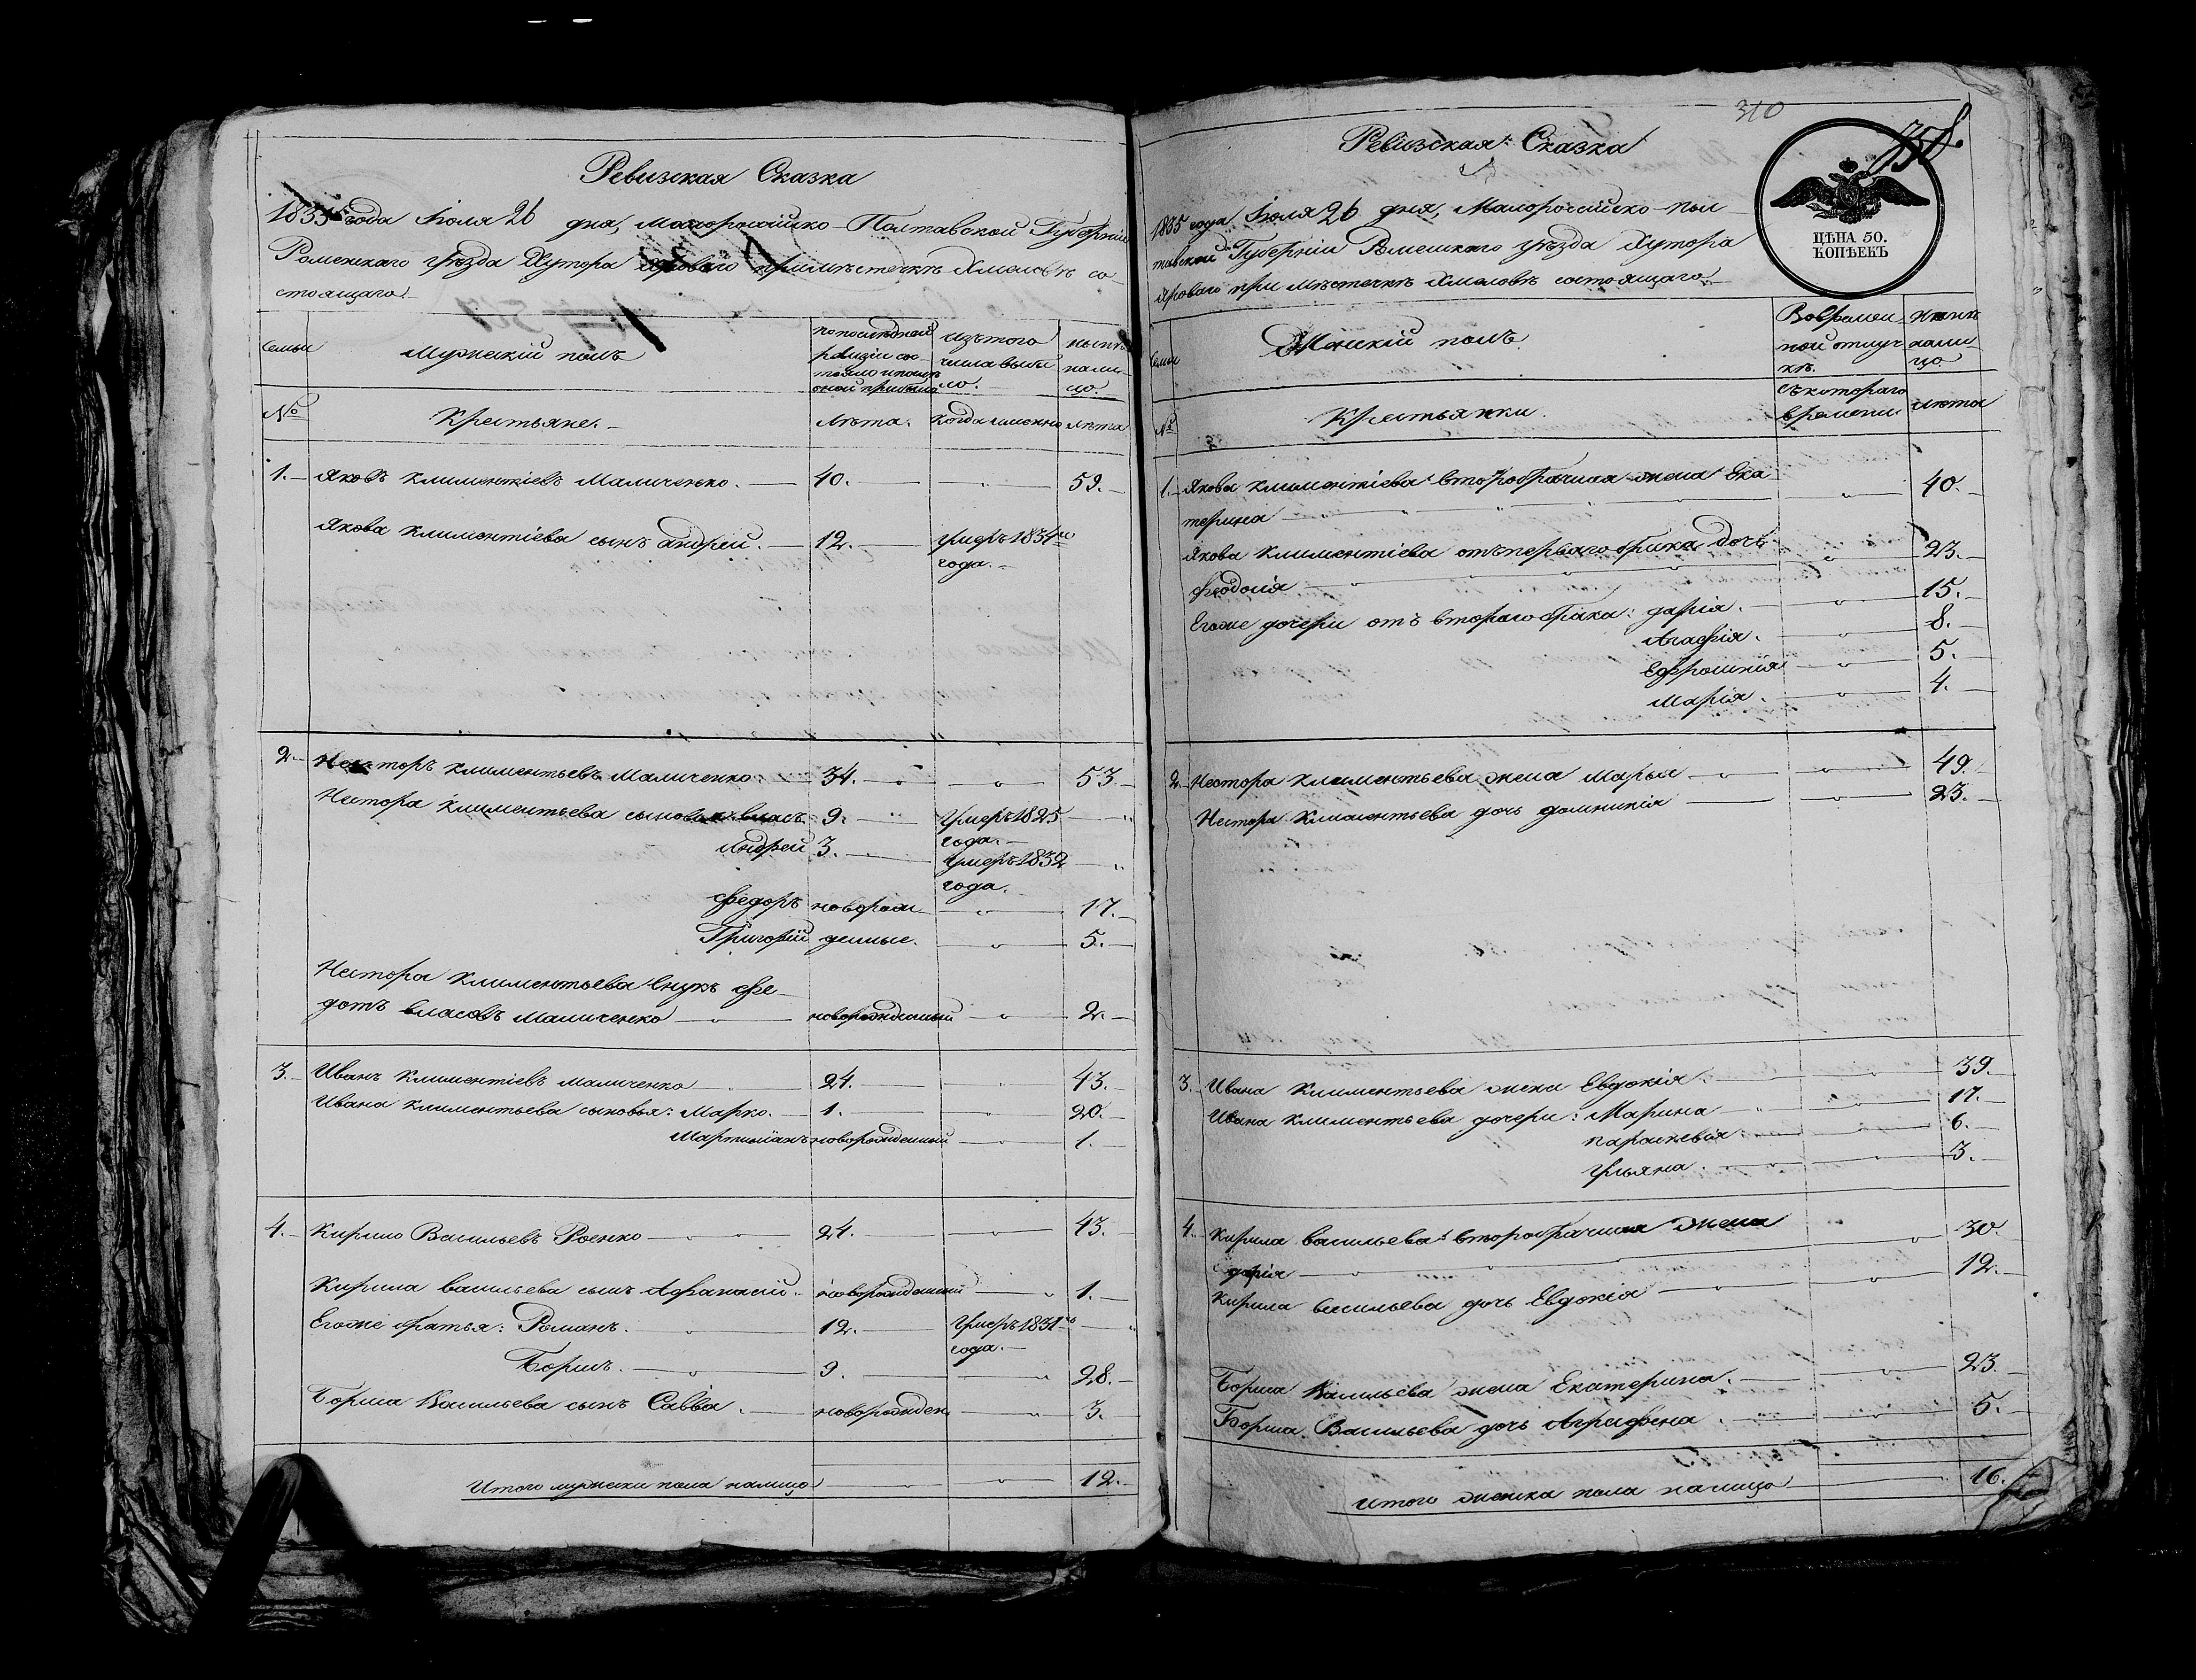 Ревизская Сказка
1835 года Іюля 26 дня, Малоросійско-Полтавской Губерніи
Роменскаго уѣзда Хутора Яроваго при мѣстечкѣ Хмеловѣ со
стоящаго.
Семьи
Мужескій полъ
по последней
ревизіи со-
стояло и после
оной прибыло
изъ того
числа выбы
ло.
ныне
нали-
цо.
№
Крестьяне.
Лѣта.
Когда именно
лѣта
1. Яковъ Климентіевъ Маличенко. 40. 59.
Якова Климентіева сынъ Андрей. 12. умеръ 1834го
года.
2. Несторъ Климентьевъ Маличенко 34. 53.
Нестора Климентьева сыновья: Власъ 9. Умеръ 1825
года.
Андрей 3. Умеръ 1832
года.
Федоръ новорож 17.
Григорій денные. 5.
Нестора Климентьева внукъ Фе-
дотъ Власовъ Маличенко новорожденный 2.
3. Иванъ Климентіевъ Маличенко 24. 43.
Ивана Климентьева сыновья: Марко. 1. 20.
Мартиніанъ новорожденный 1.
4. Кирило Васильевъ Роенко 24. 43.
Кирила Васильева сынъ Афанасій. новорожденный 1.
Егоже братья: Романъ. 12. Умеръ 1831го
года.
Борисъ. 9. 28.
Бориса Васильева сынъ Савва. новорожден. 3.
Итого мужеска пола налицо 12.
310
758.
Ревизская Сказка
1835 года Іюля 26 дня, Малоросійско-Пол
тавской Губерніи Роменскаго уѣзда Хутора
Яроваго при мѣстечкѣ Хмеловѣ состоящаго.
ЦѢНА 50.
КОПѢЕКЪ
Семьи
Женскій полъ.
Во времен
ной отлуч
кѣ.
Ныне
нали-
цо.
№
Крестьянки.
Съ котораго
времени
лѣта
1. Якова Климентіева второбрачная жена Ека 40.
терина
Якова Климентіева отъ перваго брака дочь 23.
Феодосія
Егоже дочери отъ втораго брака: Дарія. 15.
Агафія. 8.
Ефросинія 5.
Марія. 4.
2. Нестора Климентьева жена Марья 49.
Нестора Климентьева дочь Домникія 23.
3. Ивана Климентьева жена Евдокія. 39.
Ивана Климентьева дочери: Марина 17.
Параскевія 6.
Ульяна. 3.
4. Кирила Васильева второбрачная жена 30.
Дарія
Кирила Васильева дочь Евдокія 12.
Бориса Васильева жена Екатерина. 23.
Бориса Васильева дочь Агрифена. 5.
Итого женска пола налицо 16.